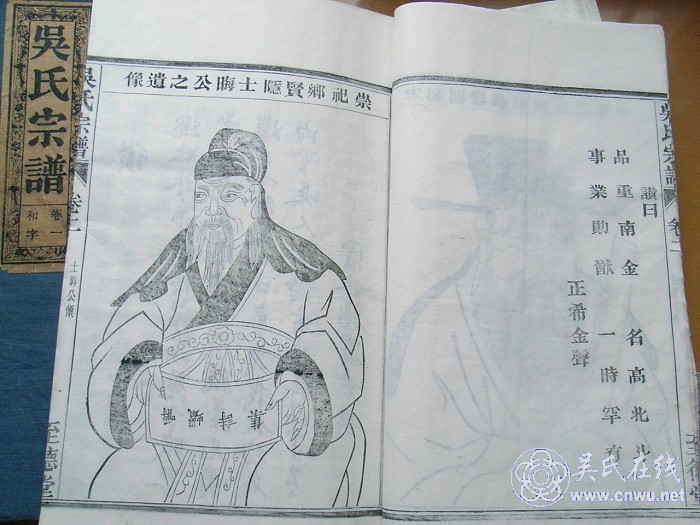 吳氏宗譜
卷一
和字
吳氏宗譜
卷二
士晦公像
至德堂
崇祀鄉賢隱士晦公之遺像
嚼蠟詩集
讚曰
品重南金 名高北斗
事業勛猷 一時罕有
正希金聲
吳氏宗譜
卷二
吴氏在线
www.cnwu.net